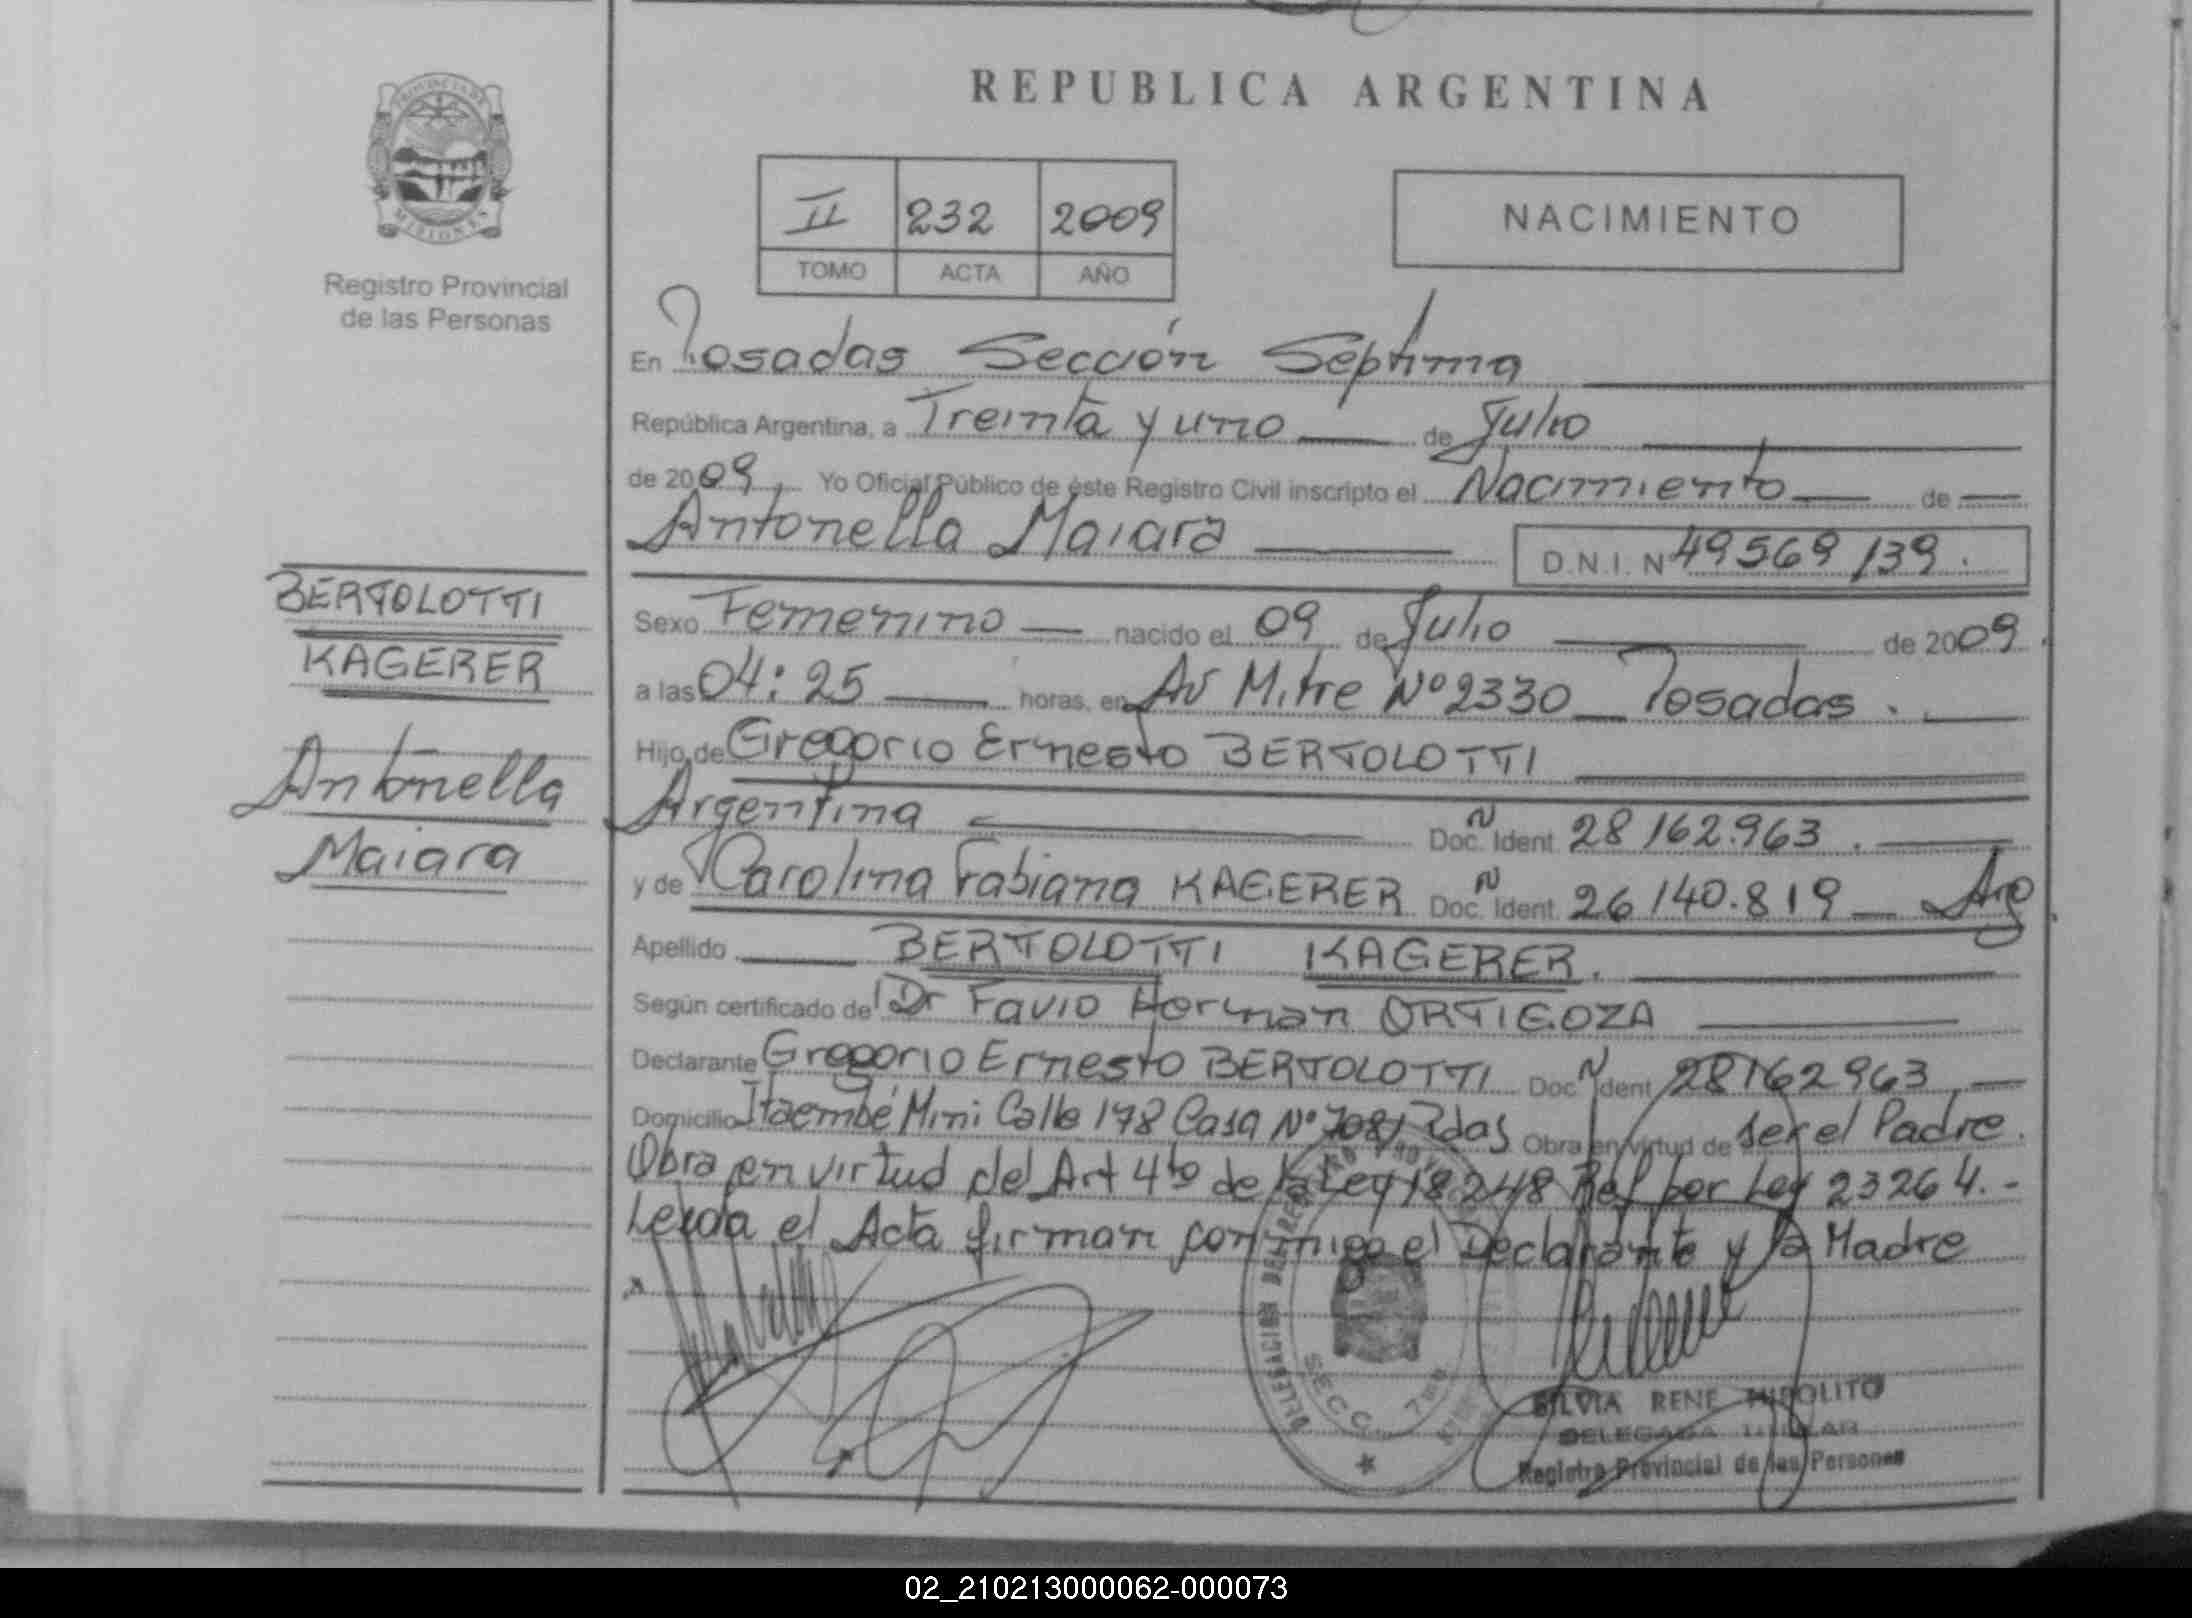 PROVINCIA DE
MISIONES
Registro Provincial
de las Personas
BERTOLOTTI
KAGERER
Antonella
Maiara
REPUBLICA ARGENTINA
II 232 2009
TOMO ACTA AÑO
NACIMIENTO
En Posadas Sección Séptima
República Argentina, a Treinta y uno de Julio
de 2009, Yo Oficial Público de éste Registro Civil inscripto el Nacimiento de
Antonella Maiara D.N.I. N 49569139.
Sexo Femenino nacido el 09 de Julio de 2009.
a las 04:25 horas, en Av Mitre Nº 2330 Posadas.
Hijo de Gregorio Ernesto BERTOLOTTI
Argentina Doc. Ident. 28162.963.
y de Carolina Fabiana KAGERER Doc. Ident. 26140.819 Arg.
Apellido BERTOLOTTI KAGERER.
Según certificado de Dr Favio Herman ORTIGOZA
Declarante Gregorio Ernesto BERTOLOTTI Doc Ident 28162963
Domicilio Itaembé Mini Calle 178 Casa Nº 7081 Pdas Obra en virtud de ser el Padre.
Obra en virtud del Art 4to de la Ley 18248 Ref por Ley 23264.-
Leida el Acta firman conmigo el Declarante y la Madre
DELEGACION DEL REGISTRO
SECC. 7ma
SILVIA RENE HIPOLITO
DELEGADA TITULAR
Registro Provincial de las Personas
02_210213000062-000073